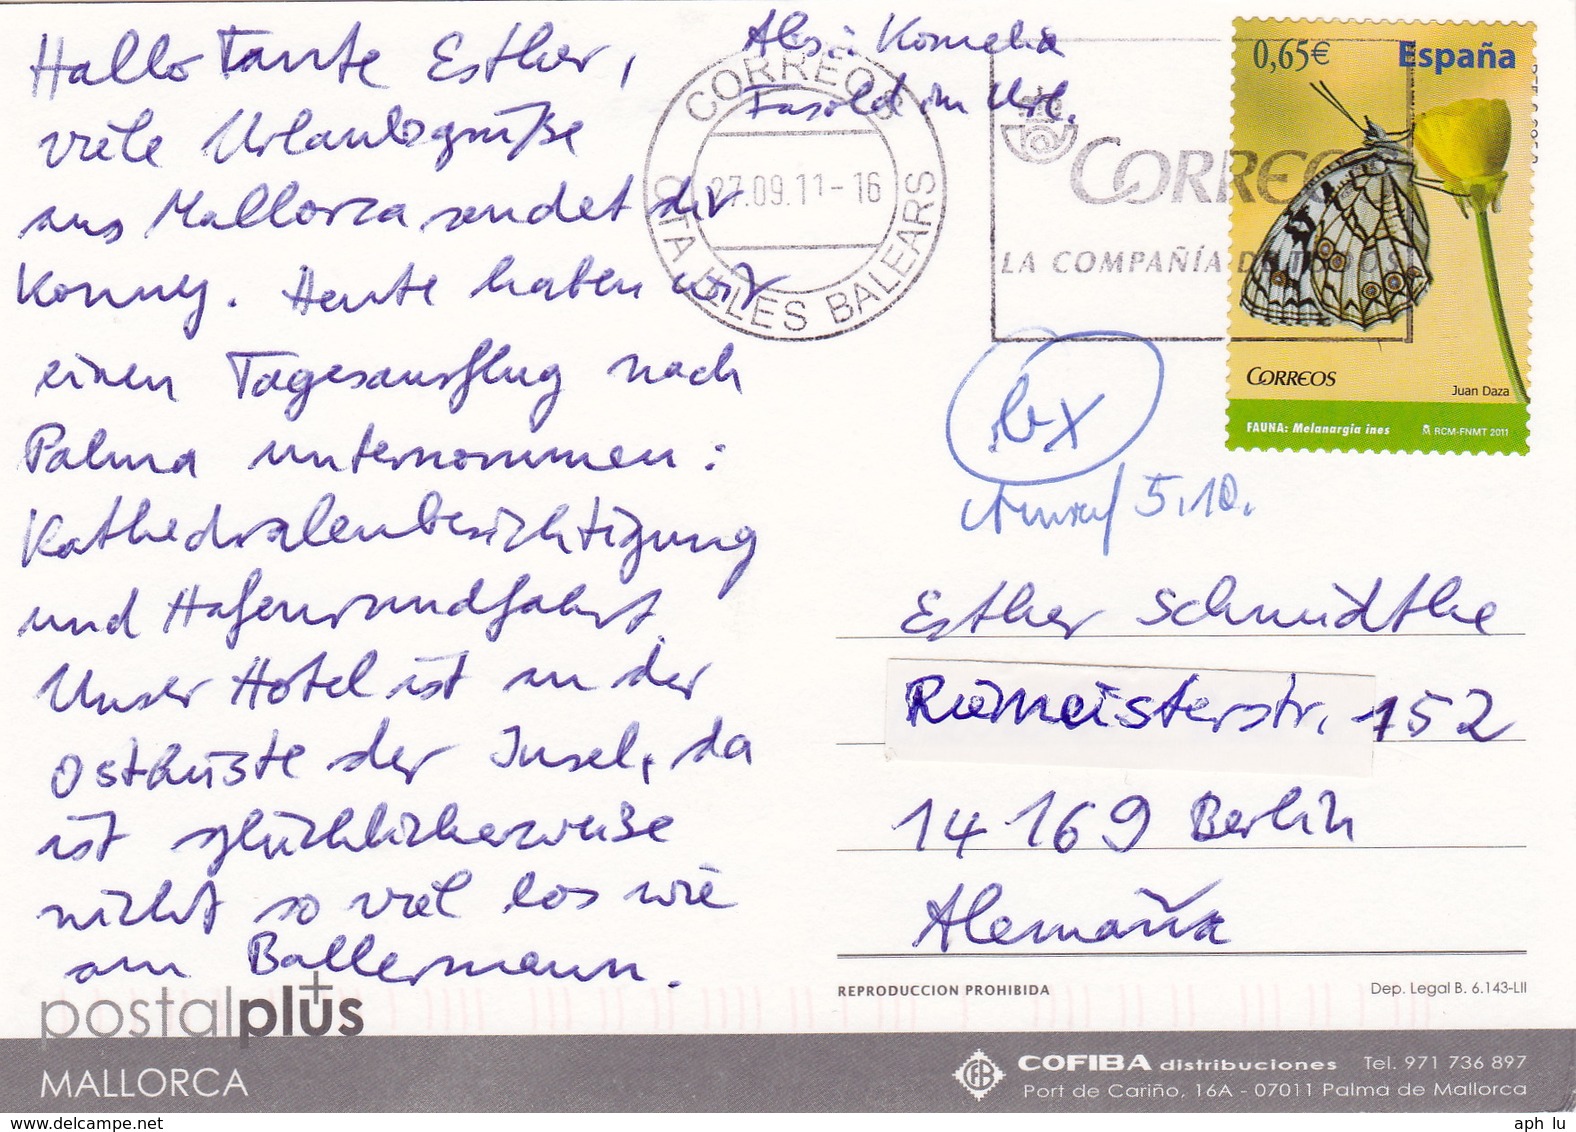 Hallo Tante Esther,
viele Urlaubsgrüße
aus Mallorca sendet dir
Konny. Heute haben wir
einen Tagesausflug nach
Palma unternommen:
Kathedralenbesichtigung
und Hafenrundfahrt.
Unser Hotel ist an der
Ostküste der Insel, da
ist glücklicherweise
nicht so viel los wie
am Ballermann.
Abs.: Kornelia
Fasold im Url.
CORREOS
27.09.11-16
CTA ILLES BALEARS
CORREOS
LA COMPAÑÍA DE TODOS
0,65€ España
CORREOS
Juan Daza
FAUNA: Melanargia ines
RCM-FNMT 2011
5.10.
Esther Schmidthe
Riemeisterstr. 152
14169 Berlin
Alemaña
REPRODUCCION PROHIBIDA
Dep. Legal B. 6.143-LII
postalplus
MALLORCA
COFIBA distribuciones Tel. 971 736 897
Port de Cariño, 16A - 07011 Palma de Mallorca
aph lu